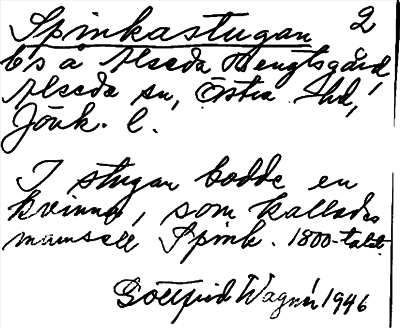 Spinkastugan 2
bs å Alseda Bengtsgård,
Alseda sn, Östra hd,
Jönk. l.
I stugan bodde en
kvinna, som kallades
mamsell Spink. 1800-talet.
Gottfrid Wagnér 1946